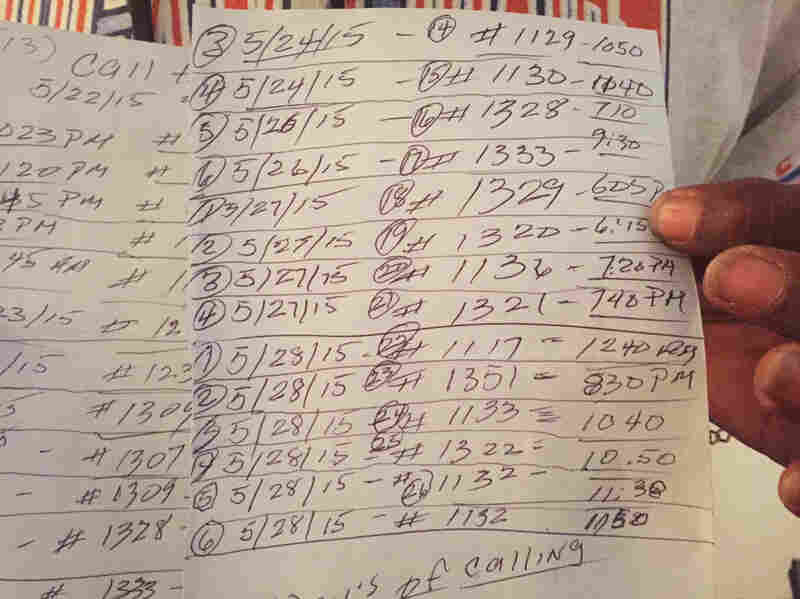 13) Call
5/22/15
023 PM #
120 PM #
45 PM #
PM # 1
45 AM # 1
23/15 # 12
/15 # 123
5 # 1306
- # 1307
- # 1309 -
- # 1328 -
# 1333 -
③ 5/24/15 - ⑭ # 1129 - 1050
④ 5/24/15 - ⑮ # 1130 - 1040
⑤ 5/26/15 - ⑯ # 1328 - 710
⑥ 5/26/15 - ⑰ # 1333 - 9:30
① 5/27/15 ⑱ # 1329 - 605 P
② 5/27/15 ⑲ # 1320 - 6:15
③ 5/27/15 # 1136 - 7:20 PM
④ 5/27/15 ㉑ # 1321 - 740 PM
① 5/28/15 - ㉒ # 1117 = 1240
② 5/28/15 ㉓ # 1351 = 830 PM
③ 5/28/15 ㉔ # 1133 = 1040
④ 5/28/15 = 25 # 1322 = 10.50
⑤ 5/28/15 - # ㉖ 1132 - 11:30
⑥ 5/28/15 - # 1132 1150
of calling